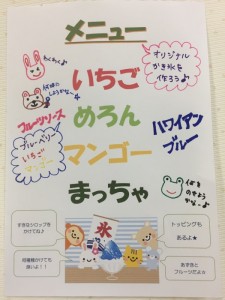 メニュー
わくわく♪
オリジナル
かき氷を
作ろう♪
いちご
何味に
しようかな〜
フルーツソース
ブルーベリー
いちご
マンゴー
めろん
ハワイアン
ブルー
マンゴー
まっちゃ
何を
のせよう
かな〜♪
すきなシロップを
かけてね♪
氷
トッピングも
あるよ★
何種類かけても
良いよ！！
あずきと
フルーツだよ♪